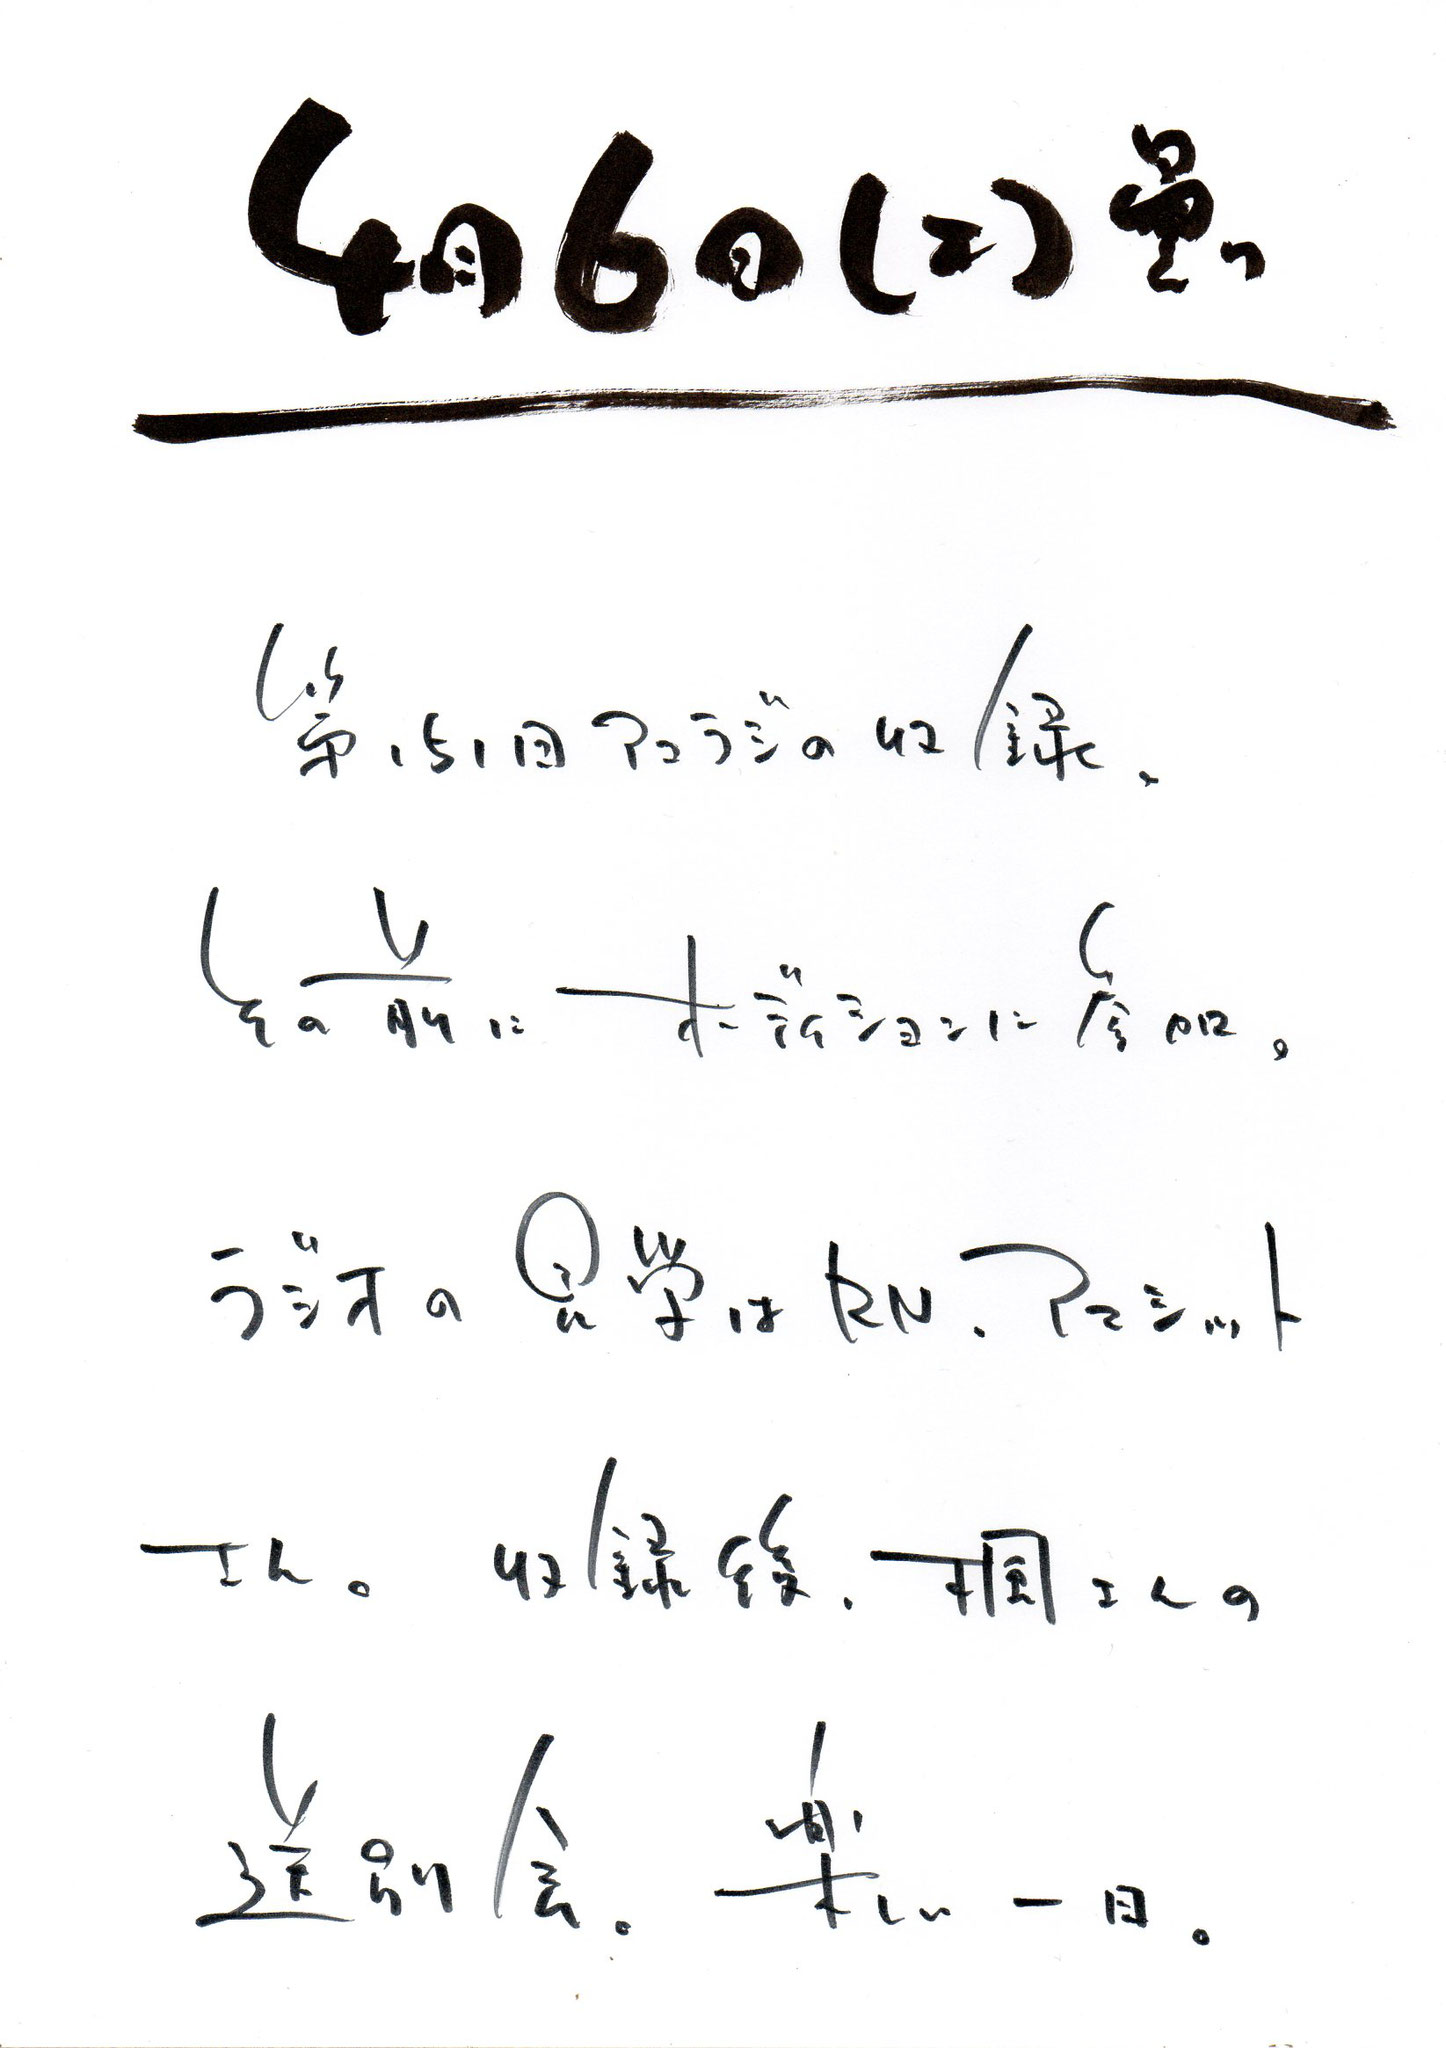 4月6日(土)曇り
第151回アコラジの収録、
その前にオーディションに参加。
ラジオの見学はRN、アコシット
さん。収録後、堀さんの
送別会。楽しい一日。